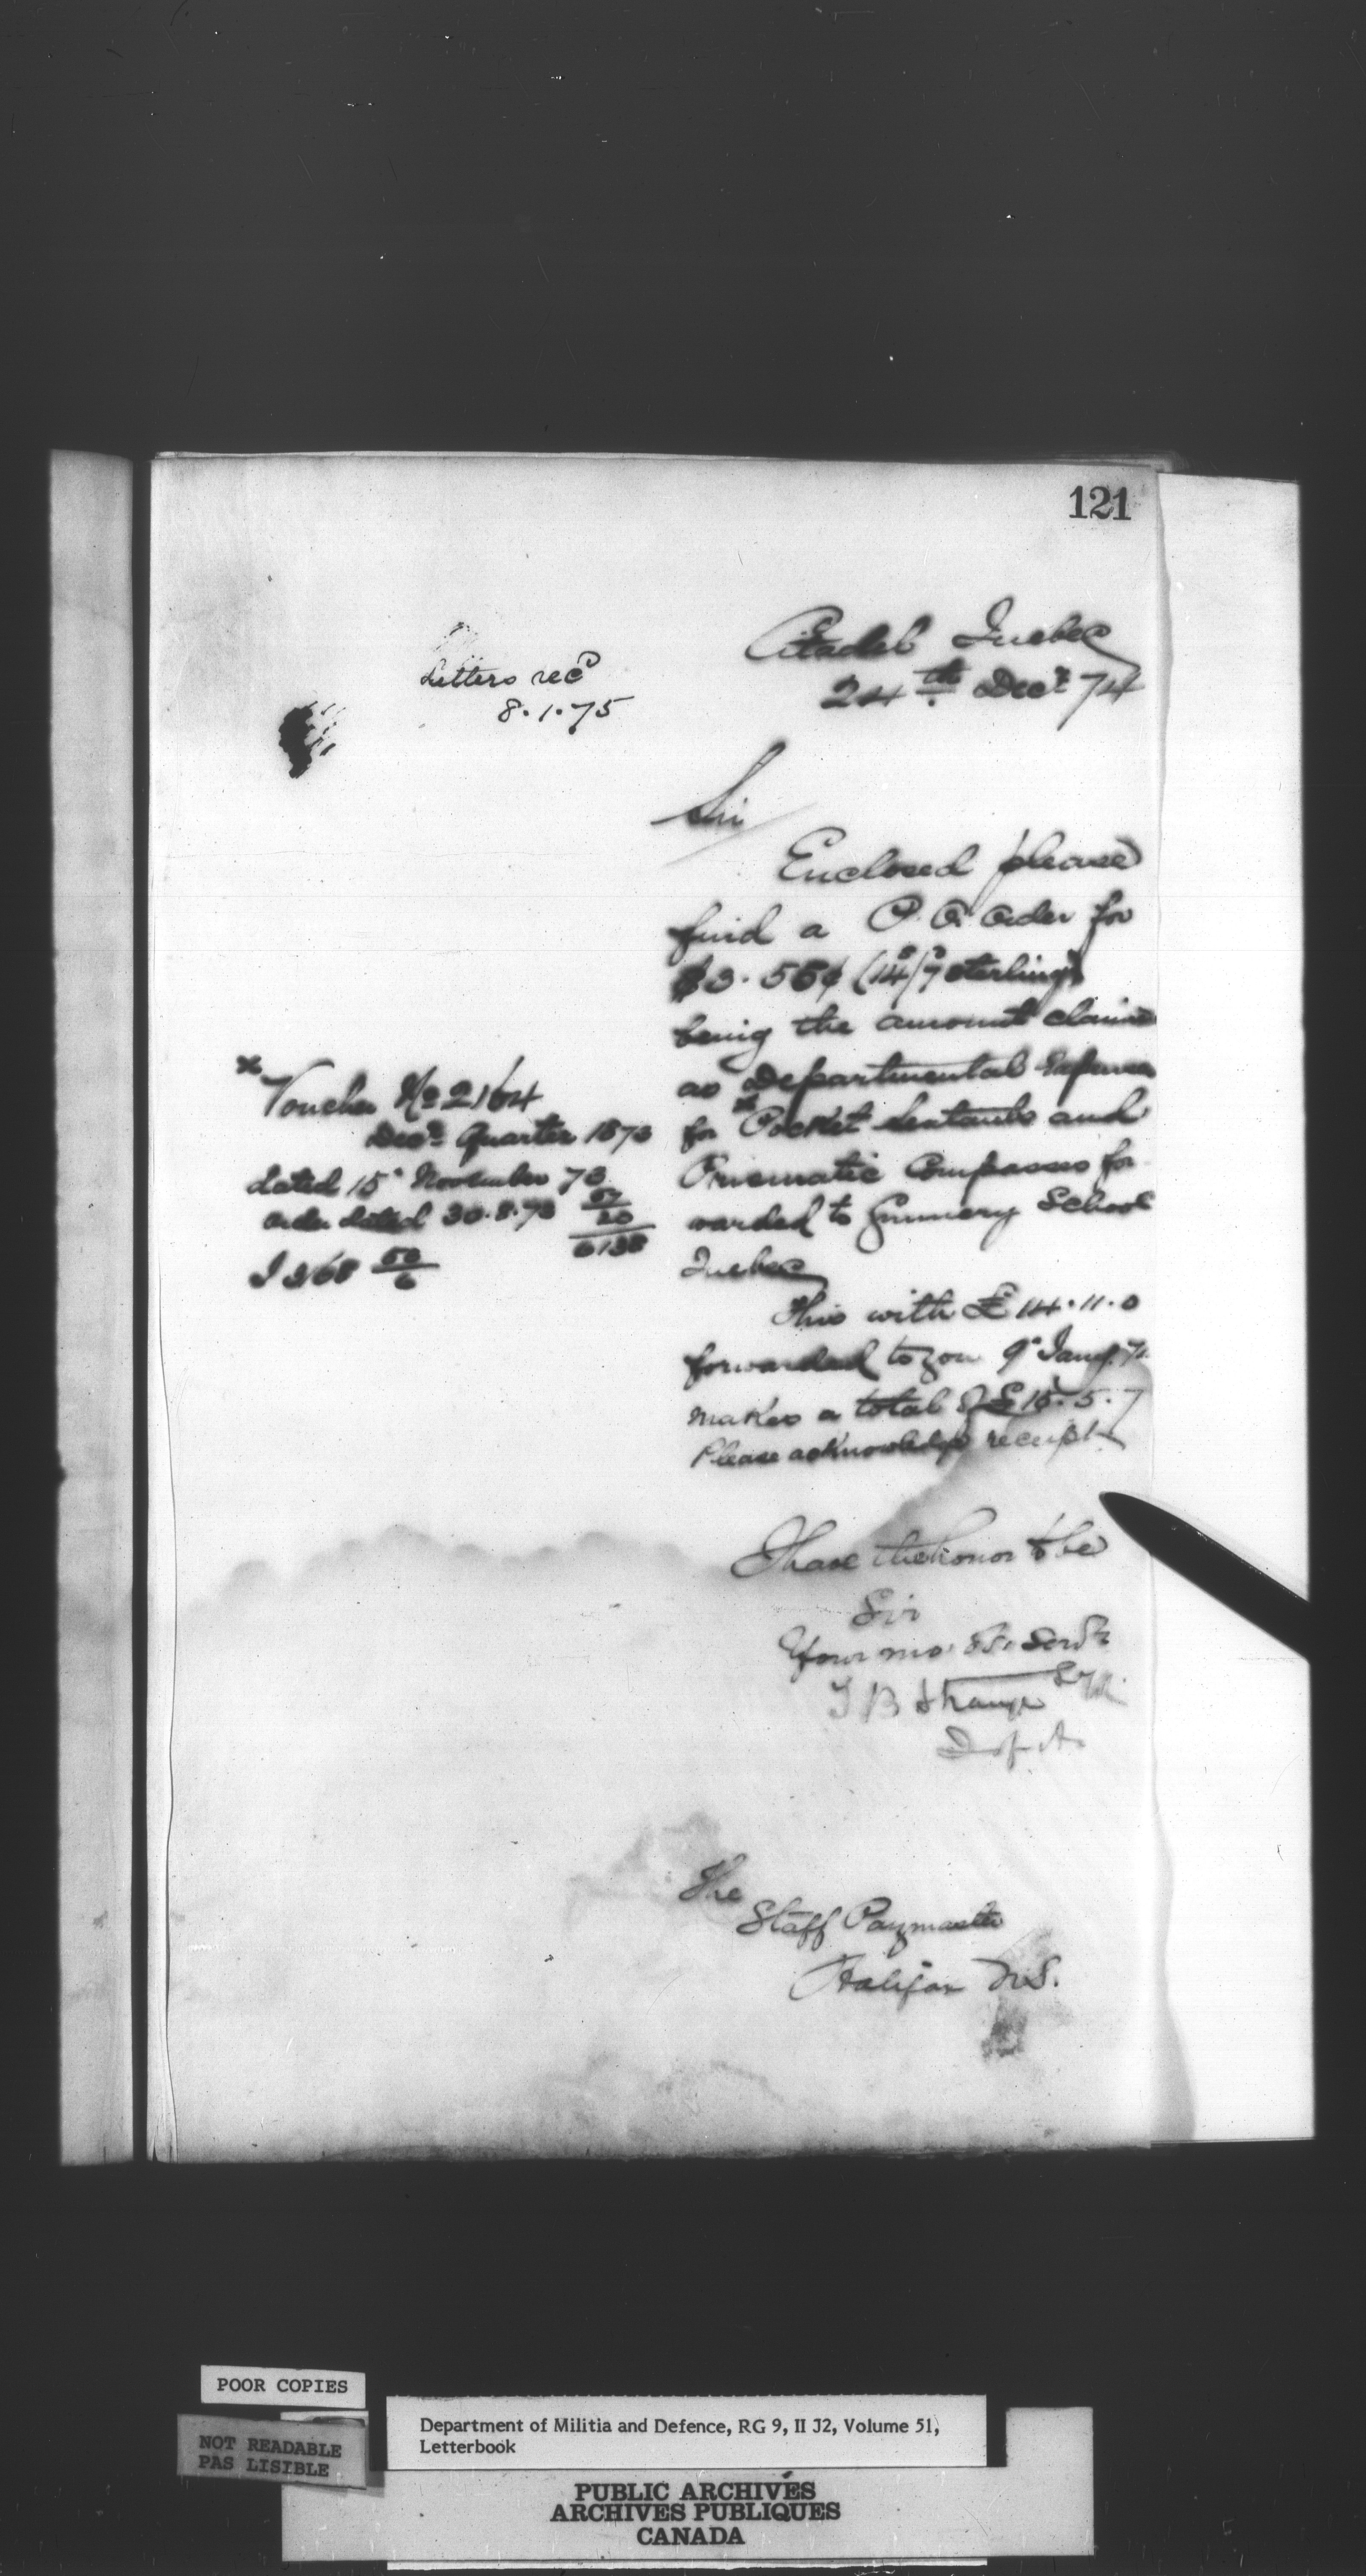 121
Citadel Quebec
24th Decr 74
Letters recd
8.1.75
Sir
Enclosed please
find a P.O. Order for
$3.56¢ (14s/7d sterling)
being the amount claimed
as Departmental Expenses
for * Pocket Sextants and
Prismatic Compasses for
warded to Gunnery School
Quebec
This with £14.11.0
forwarded to you 9" Jany
makes a total of £15.5.7
Please acknowledge receipt
* Voucher No 2164
Decr Quarter 1873
dated 15" November 73
order dated 30.8.73 57/20/6138
I 368 50/6
I have the honor to be
Sir
Your mo. Ob. Servt
T B Strange
The
Staff Paymaster
Halifax N.S.
POOR COPIES
NOT READABLE
PAS LISIBLE
Department of Militia and Defence, RG 9, II J2, Volume 51,
Letterbook
PUBLIC ARCHIVES
ARCHIVES PUBLIQUES
CANADA